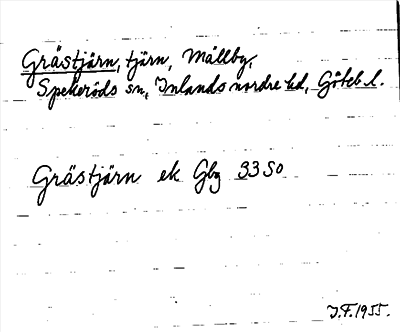 Grästjärn, tjärn, Mållby,
Spekeröds sn, Inlands nordre hd, Göteb l.
Grästjärn ek Gbg 33 SO
J.F. 1955.